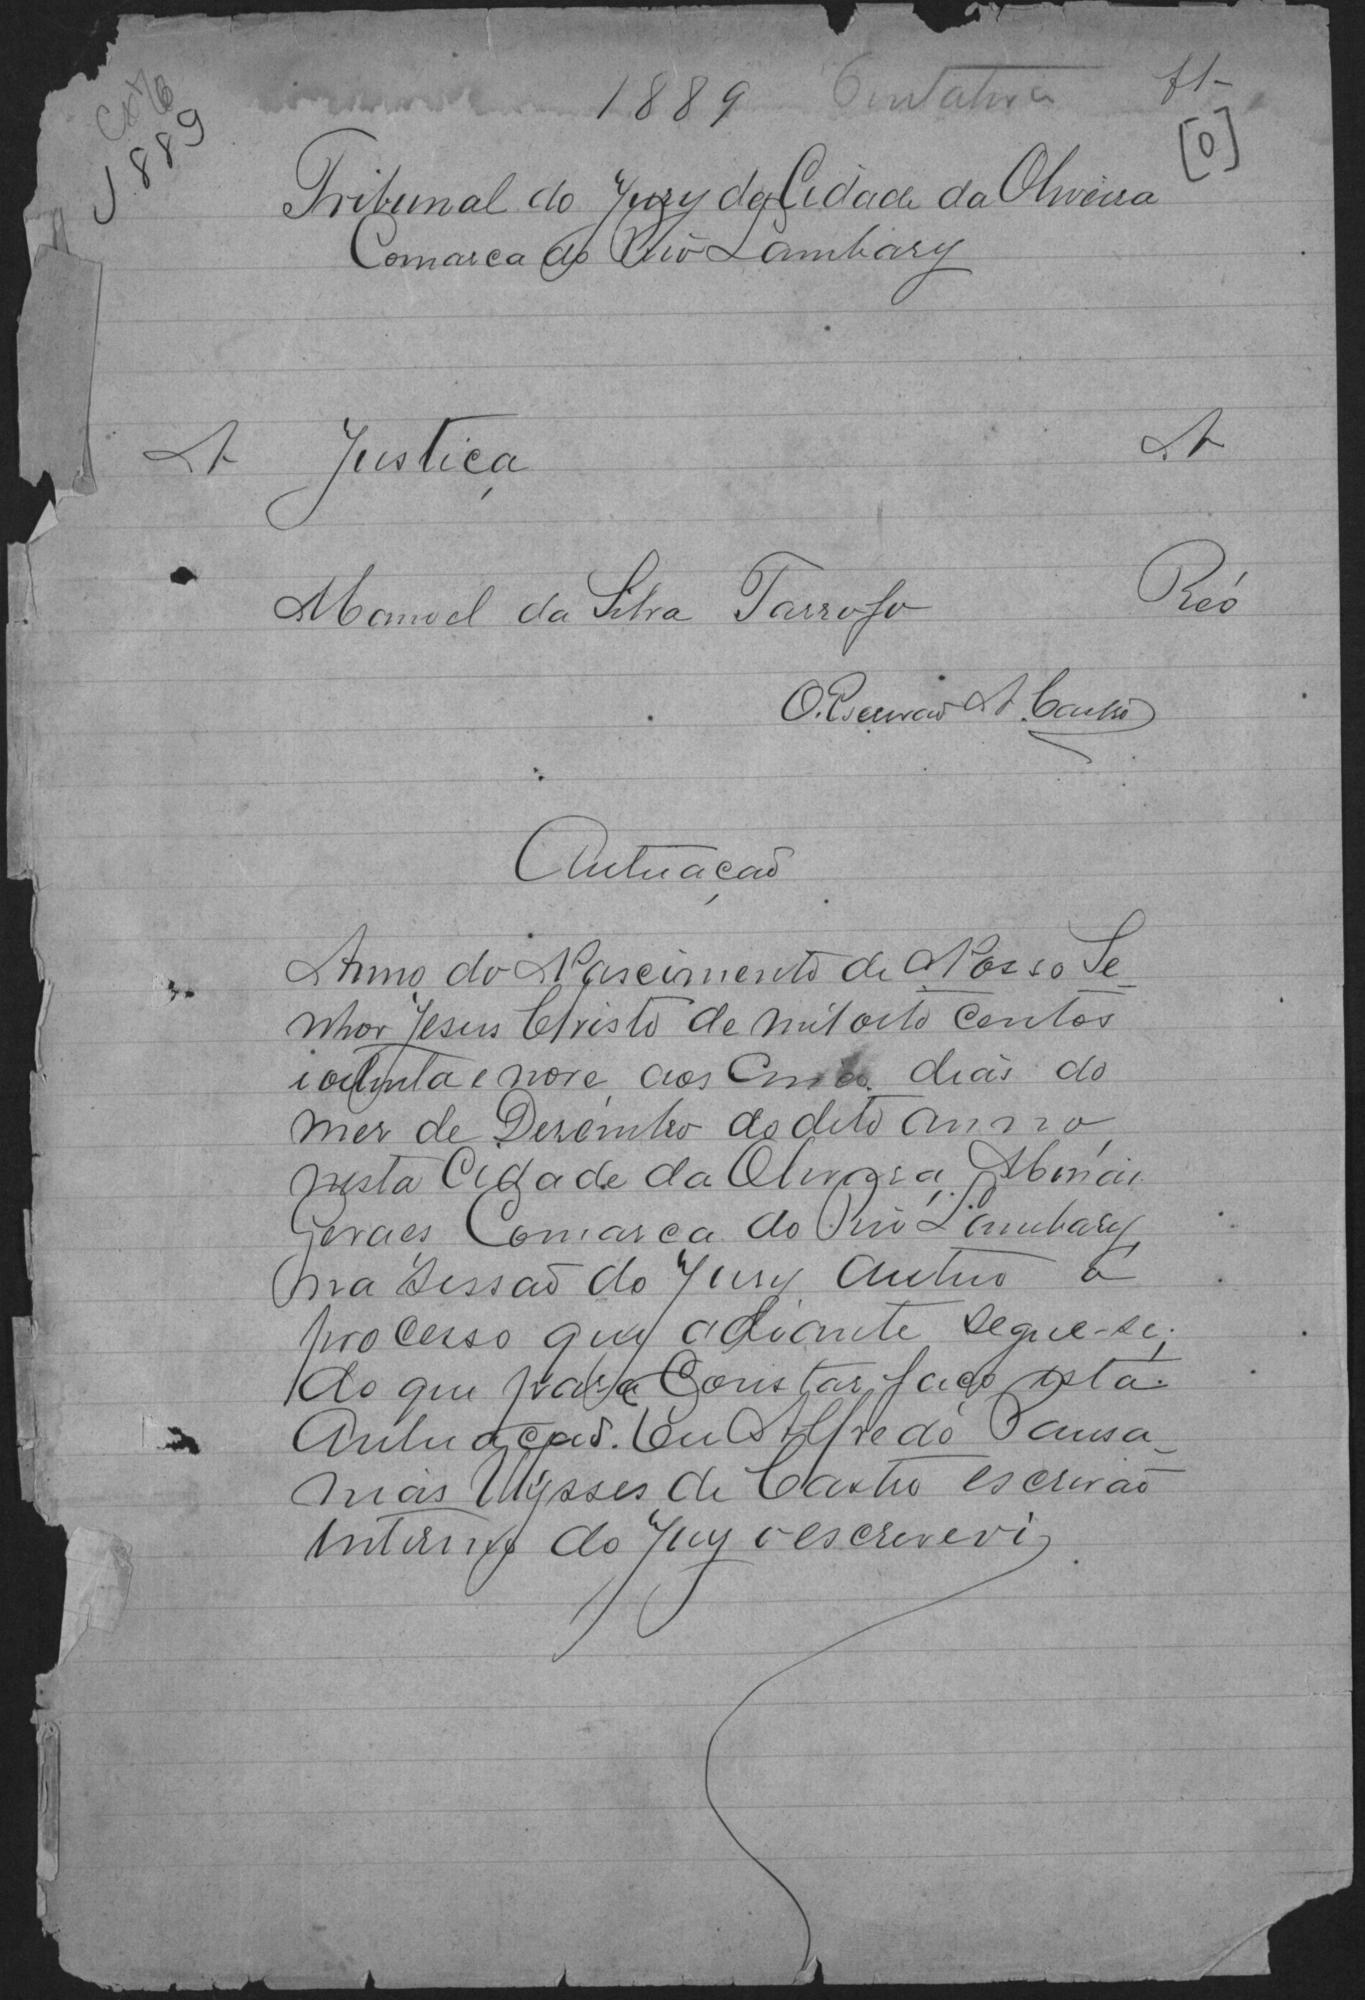 Cx 6
1889
1889 Tentativa fl-
[0]
Tribunal do Jury da Cidade da Oliveira
Comarca do Rio Lambary
A Justiça A
Manoel da Silva Tarrofo Réo
O Escrivão A. Castro
Autuação
Anno do Nascimento de Nosso Se-
nhor Jesus Christo de mil oito centos
i oitenta e nove, aos cinco dias do
mez de Dezembro do dito anno,
nesta Cidade da Oliveira, Minas
Geraes, Comarca do Rio Lambary
na Sessão do Jury autuo o
processo que adiante segue-se;
do que para constar faço esta
Autuação. Eu Alfredo Pausa-
nias Ulysses de Castro escrivão
interino do Jury o escrevi